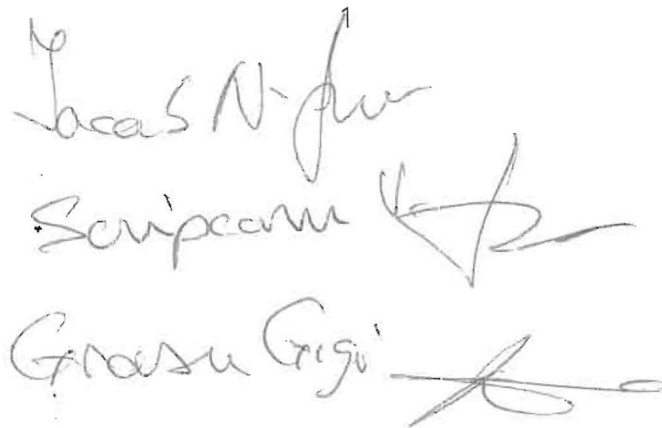 Iacob N.
Scripcaru V.
Grasu Gigi